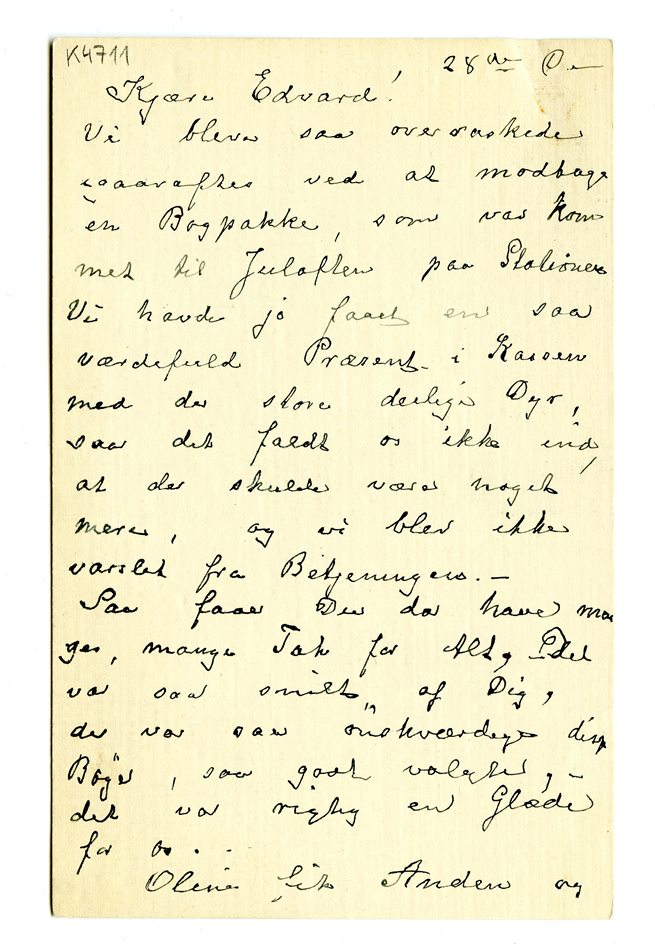 K4711
28de De
Kjære Edvard!
Vi bleve saa overraskede
iaaraftes ved at modtage
en Bogpakke, som var kom
met til Juleaften paa Stationen
Vi havde jo faaet en saa
værdefuld Præsent i Kassen
med de store deilige Dyr,
saa det faldt os ikke ind,
at der skulde være noget
mere, og vi blev ikke
varslet fra Betjeningen. —
Saa faar Du da have man
ge, mange Tak for Alt, det
var saa snilt af Dig,
de var saa önskværdige disse
Bøger, saa godt valgte, —
det var rigtig en Glæde
for os. .
Oline fik Anden og